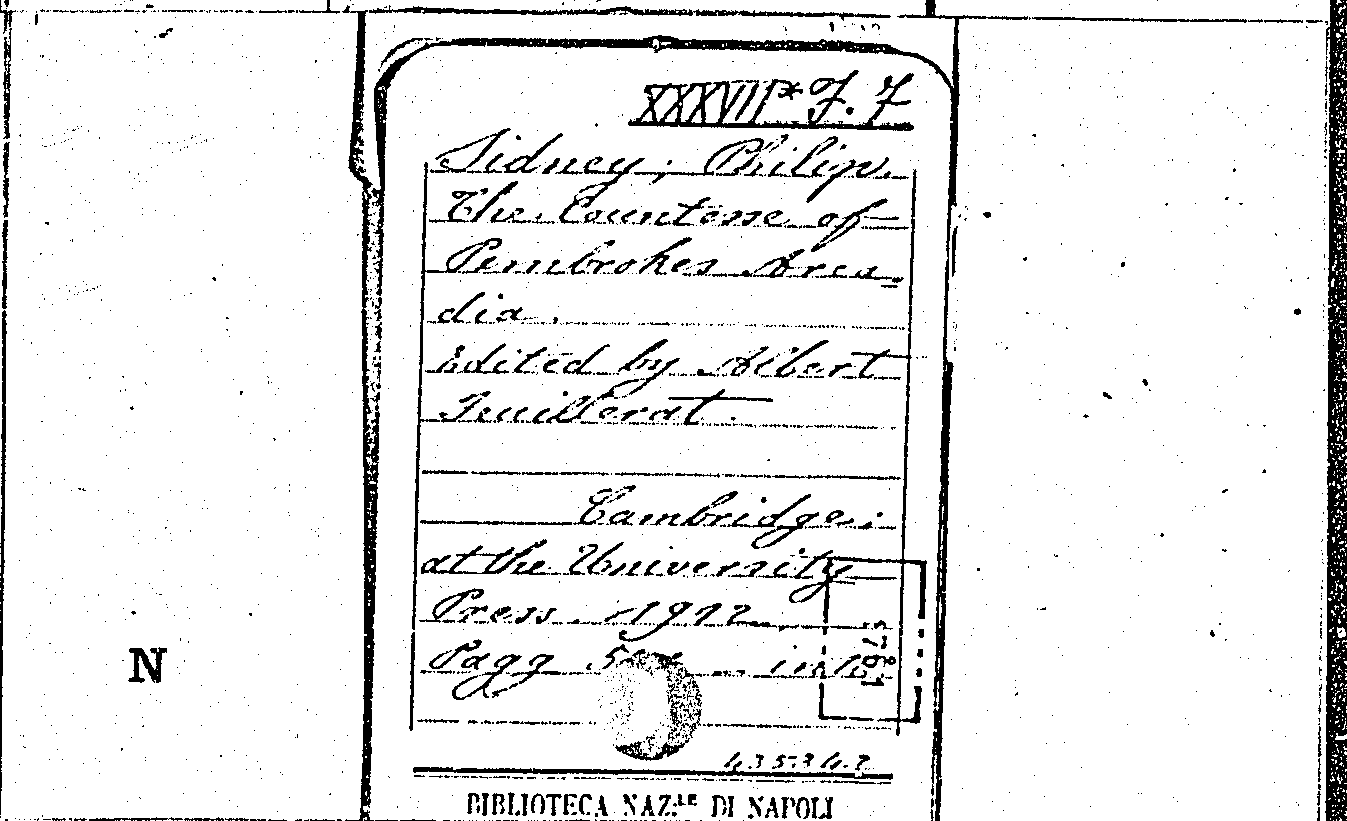 XXXVII* J. 7
Sidney, Philip.
The Countesse of
Pembrokes Arca=
dia.
Edited by Albert
Feuillerat.
Cambridge:
at the University
Press. 1912
Pagg
N
BIBLIOTECA NAZ.LE DI NAPOLI